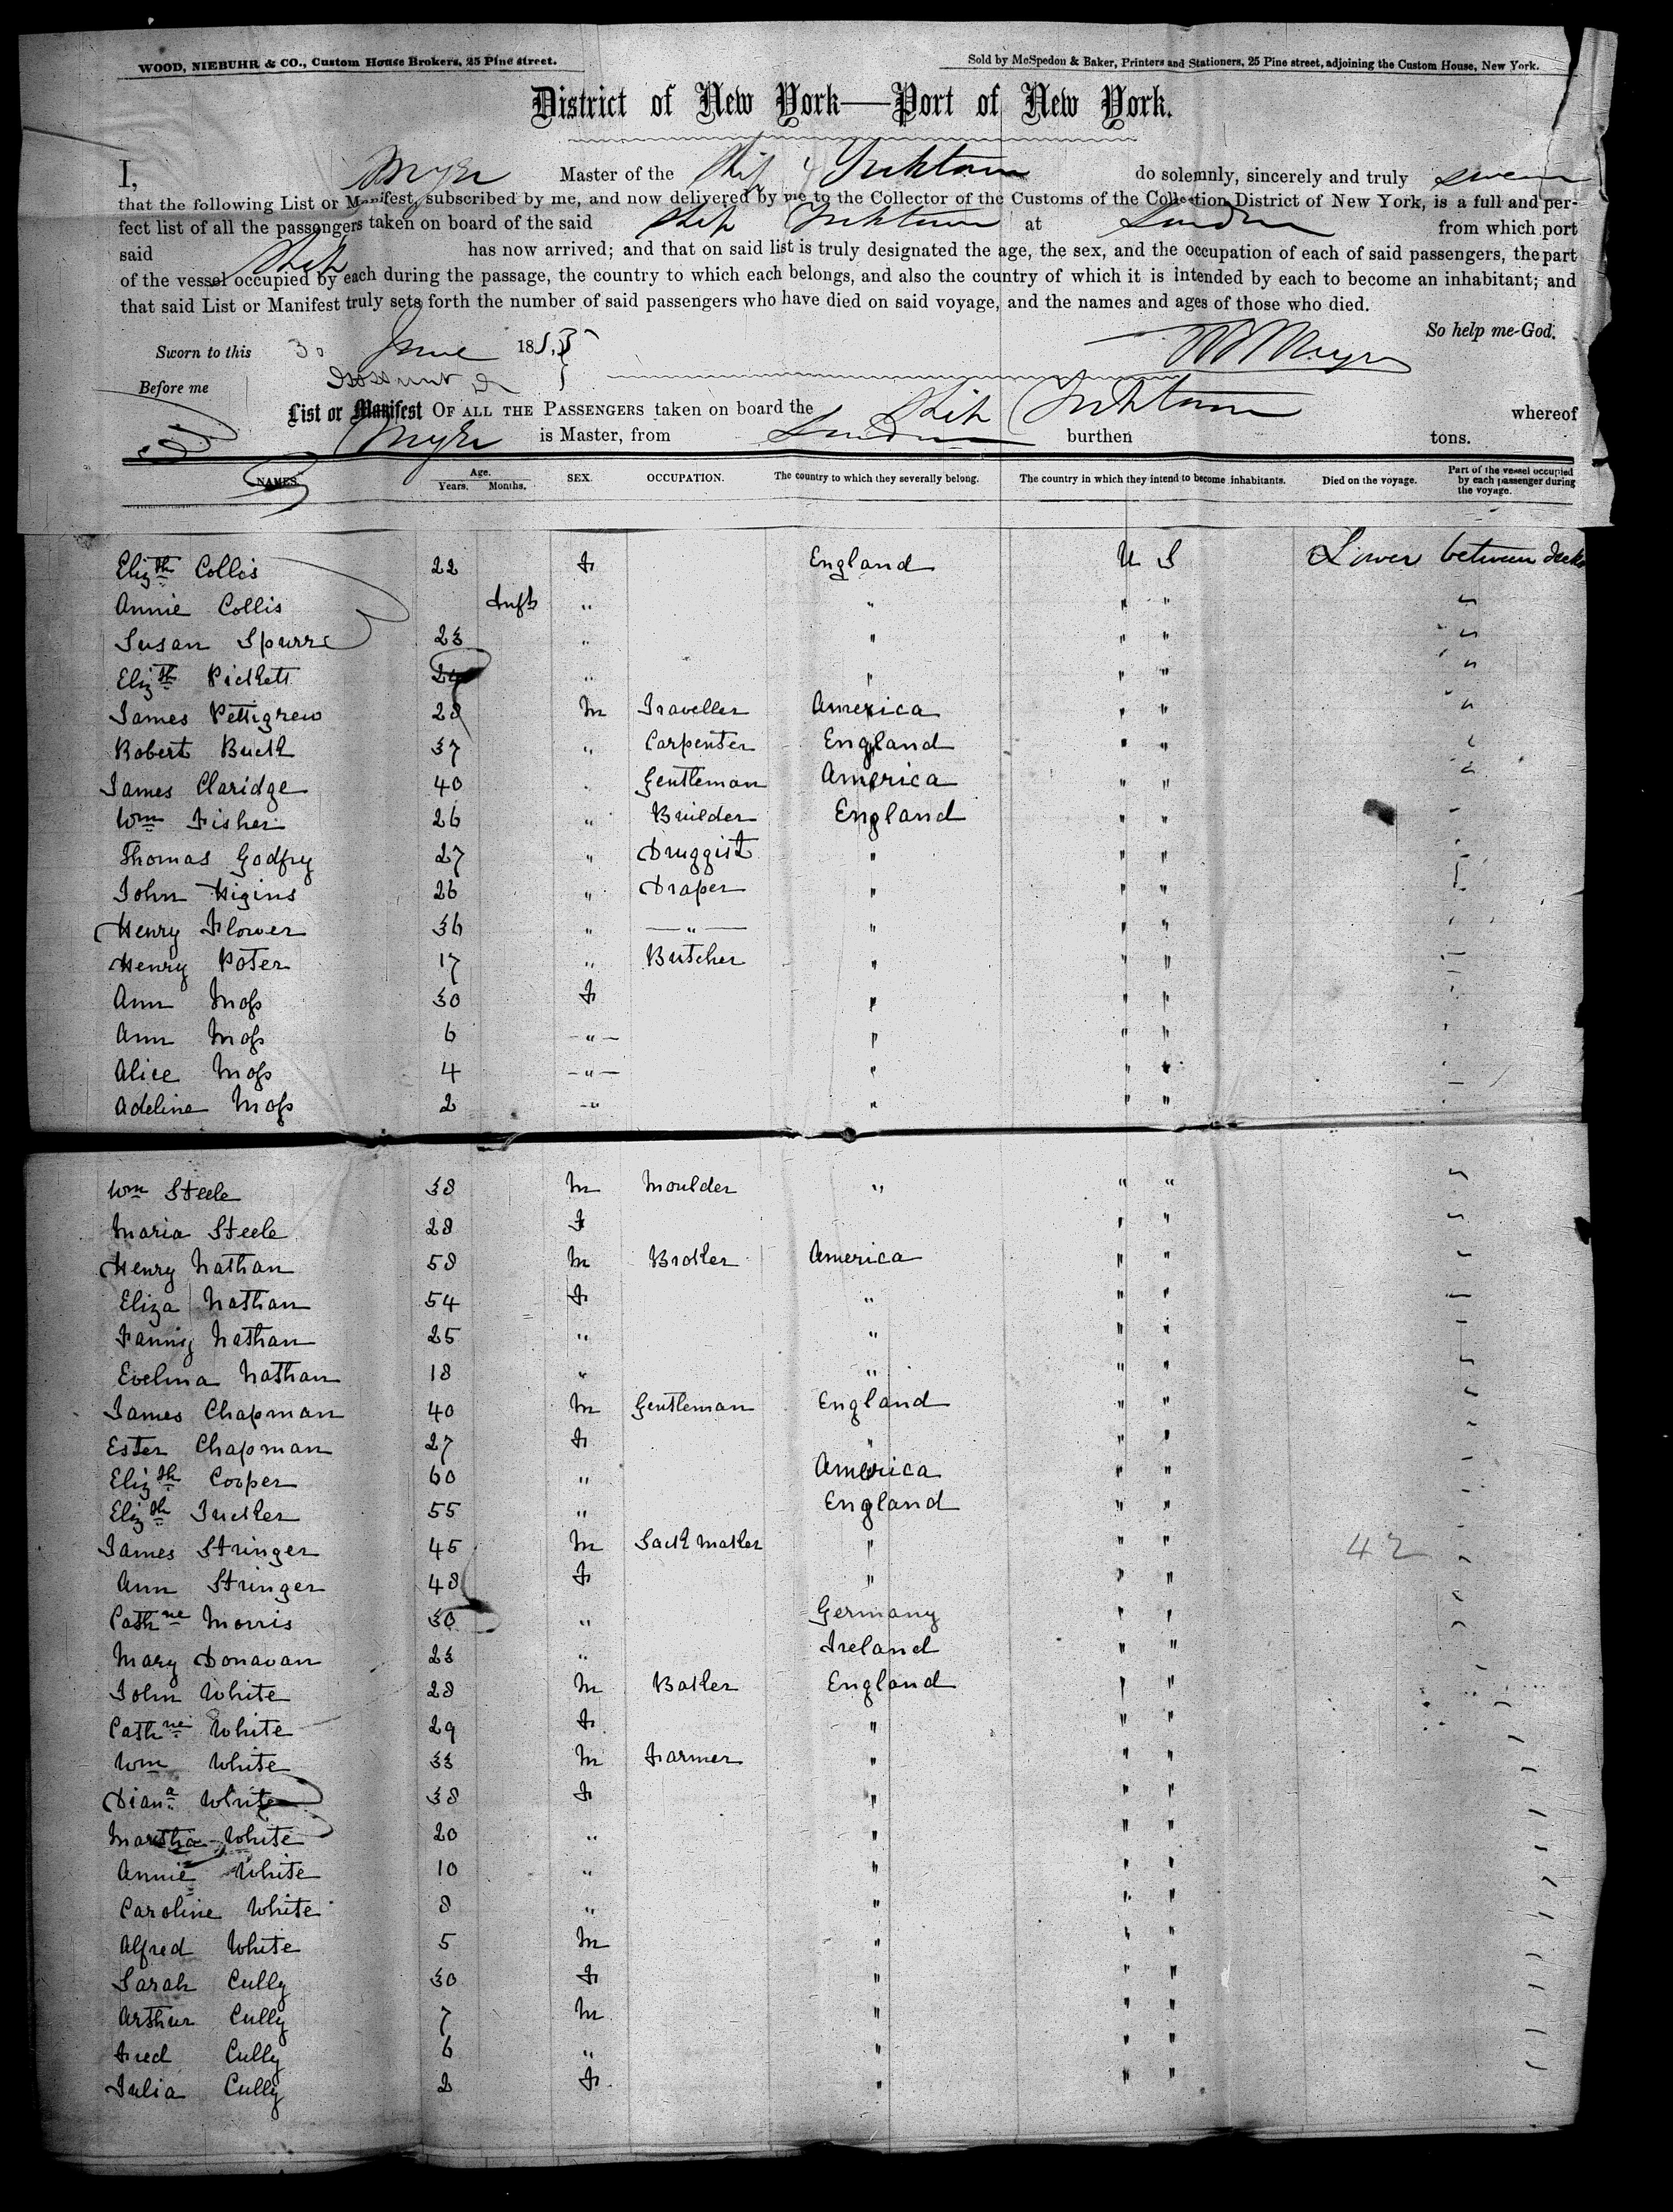 WOOD, NIEBUHR & CO., Custom House Brokers, 25 Pine street.
Sold by McSpedon & Baker, Printers and Stationers, 25 Pine street, adjoining the Custom House, New York.
District of New York—Port of New York.
I, Master of the Ship Yorktown do solemnly, sincerely and truly swear
that the following List or Manifest, subscribed by me, and now delivered by me to the Collector of the Customs of the Collection District of New York, is a full and per-
fect list of all the passengers taken on board of the said Ship Yorktown at London from which port
said Ship has now arrived; and that on said list is truly designated the age, the sex, and the occupation of each of said passengers, the part
of the vessel occupied by each during the passage, the country to which each belongs, and also the country of which it is intended by each to become an inhabitant; and
that said List or Manifest truly sets forth the number of said passengers who have died on said voyage, and the names and ages of those who died.
So help me God.
Sworn to this 30 June 185
Before me
List or Manifest OF ALL THE PASSENGERS taken on board the Ship Yorktown whereof
is Master, from London burthen tons.
NAMES. Age. Years. Months. SEX. OCCUPATION. The country to which they severally belong. The country in which they intend to become inhabitants. Died on the voyage. Part of the vessel occupied by each passenger during the voyage.
Elizth Collis 22 F England U S Lower between decks
Annie Collis Inft " " " " "
Susan Spurre 23 " " " " "
Elizth Pickett 24 " " " " "
James Pettigrew 28 M Traveller America " " "
Robert Buck 37 " Carpenter England " " "
James Claridge 40 " Gentleman America " " "
Wm Fisher 26 " Builder England " " "
Thomas Godfry 27 " Druggist " " " "
John Higins 26 " Draper " " " "
Henry Flower 36 " " " " " "
Henry Poter 17 " Butcher " " " "
Ann Moss 30 F " " " "
Ann Moss 6 " " " " "
Alice Moss 4 " " " " "
Adeline Moss 2 " " " " "
Wm Steele 38 M Moulder " " " "
Maria Steele 28 F " " "
Henry Nathan 58 M Broker America " " "
Eliza Nathan 54 F " " " "
Fanny Nathan 25 " " " " "
Evelina Nathan 18 " " " " "
James Chapman 40 M Gentleman England " " "
Ester Chapman 27 F " " " "
Elizth Cooper 60 " America " " "
Elizth Tucker 55 " England " " "
James Stringer 45 M Sack Maker " " " 42 "
Ann Stringer 48 F " " " "
Cathne Morris 30 " Germany " " "
Mary Donavan 23 " Ireland " "
John White 28 M Baker England " " "
Cathne White 29 F " " " "
Wm White 33 M Farmer " " " "
Diana White 38 F " " " "
Martha White 20 " " " " "
Annie White 10 " " " " "
Caroline White 8 " " " " "
Alfred White 5 M " " " "
Sarah Cully 30 F " " " "
Arthur Cully 7 M " " " "
Fred Cully 6 " " " " "
Julia Cully 2 F " " " "